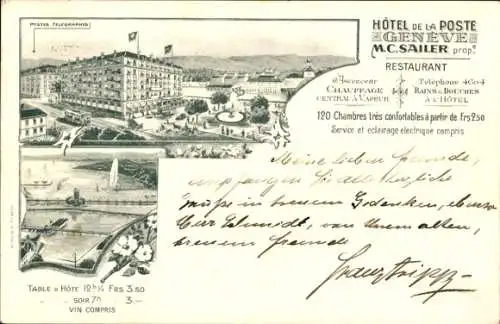 POSTES TELEGRAPHES
HÔTEL DE LA POSTE
GENÈVE
M.C. SAILER prop.
RESTAURANT
Ascenseur
CHAUFFAGE
CENTRAL À VAPEUR
Téléphone 4604
BAINS & DOUCHES
À L'HÔTEL
120 Chambres très confortables à partir de Frs 2.50
Service et éclairage électrique compris
Meine lieben Freunde,
empfangen Sie alle herzliche
Grüsse in treuem Gedenken, ebenso
Herr Schmidt, von Ihrem alten,
treuen Freunde
TABLE D'HÔTE 12 h ¼ FRS 3.50
SOIR 7 h 3.—
VIN COMPRIS